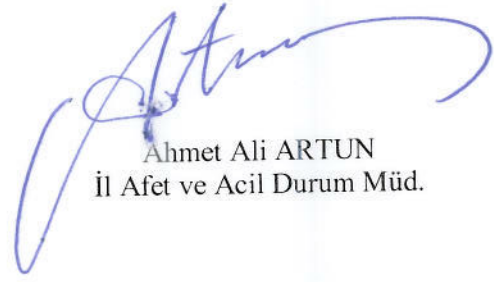 Artun
Ahmet Ali ARTUN
İl Afet ve Acil Durum Müd.